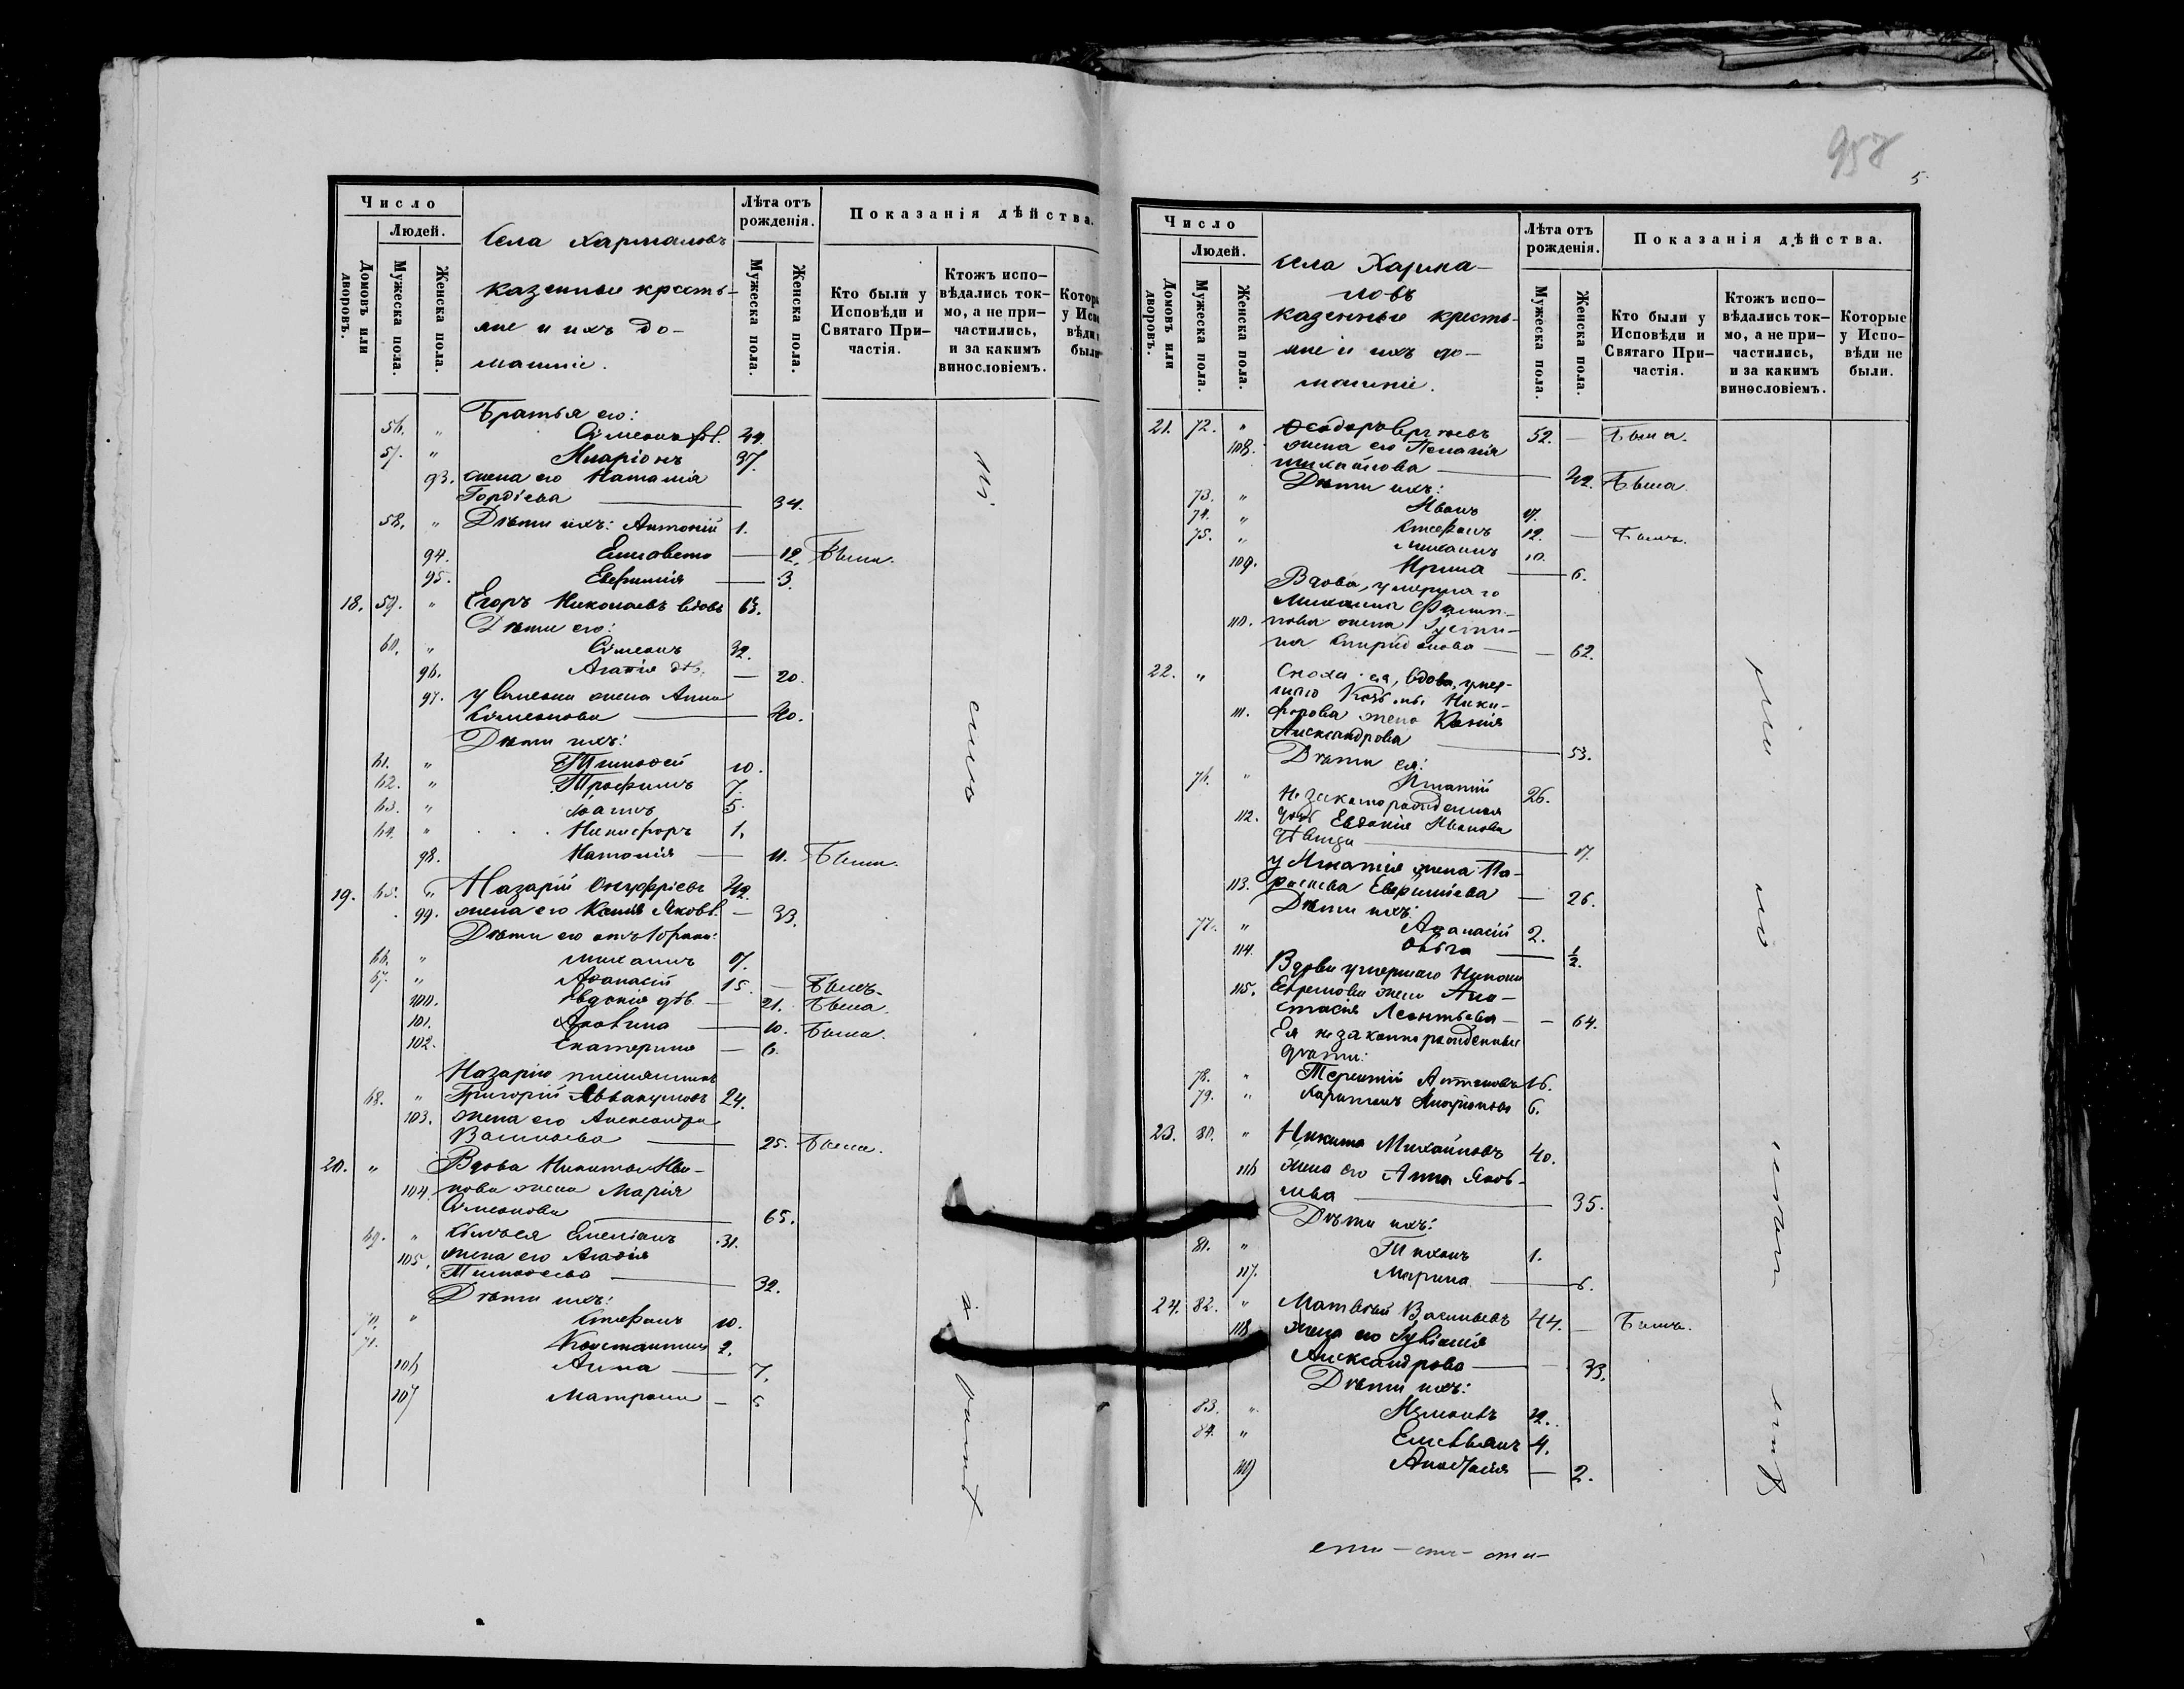 Число
Людей.
Домовъ или дворовъ.
Мужеска пола.
Женска пола.
Села Хармаловъ
казенные крестья-
не и ихъ до-
машніе.
Лѣта отъ рожденія.
Мужеска пола.
Женска пола.
Показанія дѣйства.
Кто были у Исповѣди и Святаго При-частія.
Ктожъ испо-вѣдались ток-мо, а не при-частились, и за какимъ винословіемъ.
Братья его:
56. " Сѵмеонъ 44.
57. " Иларіонъ 37.
93. жена его Наталія
Гордіева — 34.
58. " Дѣти ихъ: Антоній 1.
94. Елисавета — 12. Была.
95. Евфимія — 3.
18. 59. " Егоръ Николаевъ вдовъ 63.
Дѣти его:
60. " Сѵмеонъ 32.
96. Агаѳія дѣв. — 20.
97. у Сѵмеона жена Анна
Сѵмеонова — 30.
Дѣти ихъ:
61. " Тимоѳей 10.
62. " Трофимъ 7.
63. " 5.
64. " Никифоръ 1.
98. Наталія — 11. Была.
19. 65. " Назарій Онуфріевъ 42.
99. жена его Ксенія Яковл. — 33.
Дѣти его отъ 1 брака:
66. " Михаилъ 17.
67. " Аѳанасій 15. — Былъ.
100. Евдокія дѣв. — 21. Была.
101. Акилина — 10. Была.
102. Екатерина — 6.
Назарія племянникъ
68. " Григорій Аввакумовъ 24.
103. жена его Александра
Васильева — 25. Была.
20. " Вдова Никиты Ива-
104. нова жена Марія
Сѵмеонова — 65.
69. " Сынъ ея Емеліанъ 31.
105. жена его Агаѳія
Тимоѳеева — 32.
Дѣти ихъ:
70. " Стефанъ 10.
71. Константинъ 2.
106 Анна — 7.
107 Матрона — 5
958
5.
Число
Людей.
Домовъ или дворовъ.
Мужеска пола.
Женска пола.
Села Харма-
ловъ
казенные крестья-
не и ихъ до-
машніе.
Лѣта отъ рожденія.
Мужеска пола.
Женска пола.
Показанія дѣйства.
Кто были у Исповѣди и Святаго При-частія.
Ктожъ испо-вѣдались ток-мо, а не при-частились, и за какимъ винословіемъ.
Которые у Испо-вѣди не были.
21. 72. " Ѳеодоръ Сергѣевъ 52. — Былъ.
108. жена его Пелагія
Михайлова — 42. Была.
Дѣти ихъ:
73. " Иванъ 17.
74. " Стефанъ 12. — Былъ.
75. " Михаилъ 10.
109. Ирина — 6.
Вдова, умершаго
Михаила Филип-
110. пова жена Іусти-
на Спиридонова — 62.
22. " Сноха ея, вдова, умер-
шаго Козьмы Ники-
111. форова жена Ксенія
Александрова — 53.
Дѣти ея:
76. " Игнатій 26.
Незаконорожденная
112. дочь Евдокія Иванова
дѣвица — 17.
у Игнатія жена Па-
113. раскева Евфиміева — 26.
Дѣти ихъ:
77. " Аѳанасій 2.
114. Ольга — ½.
Вдова умершаго Никона
115. Ефремова жена Ана-
стасія Леонтьева — 64.
Ея незаконнорожденные
дѣти:
78. " Терентій Антоновъ 16.
79. " Харитонъ 6.
23. 80. " Никита Михайловъ 40.
116 жена его Анна Яков-
лева — 35.
Дѣти ихъ:
81. " Тихонъ 1.
117. Марина — 6.
24. 82. " Матвѣй Васильевъ 44. — Былъ.
118. жена его Іуліанія
Александрова — 33.
Дѣти ихъ:
83. " 12.
84. " 4.
119 Анастасія — 2.